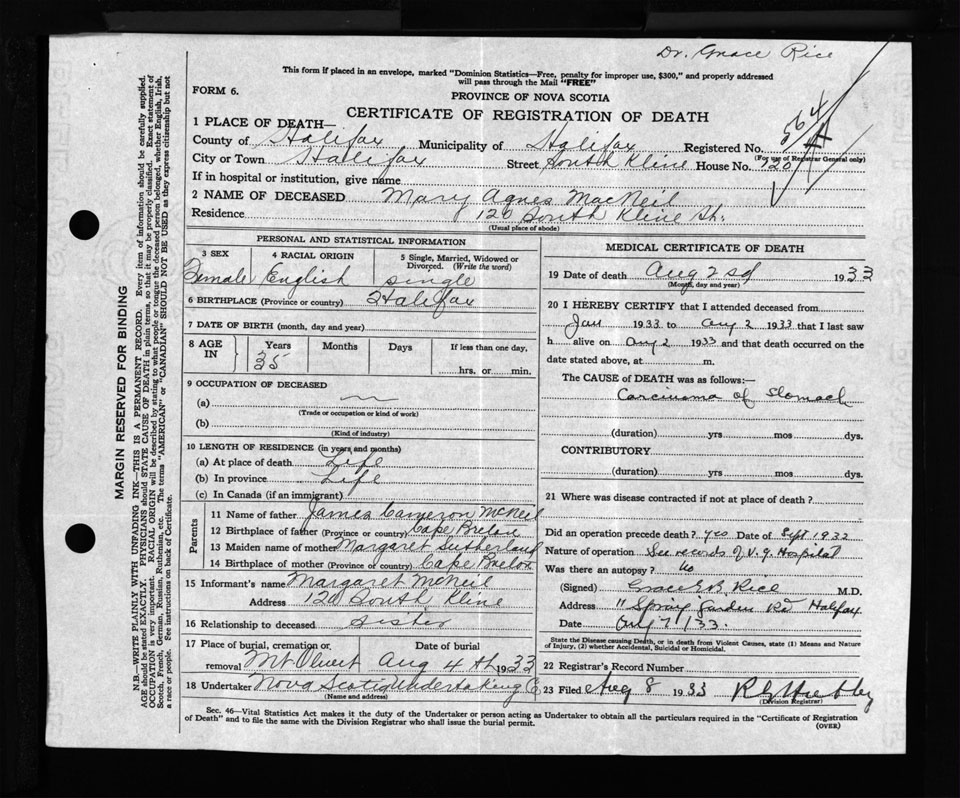 Dr. Grace Rice
This form if placed in an envelope, marked "Dominion Statistics—Free, penalty for improper use, $300," and properly addressed
will pass through the Mail "FREE"
FORM 6.
PROVINCE OF NOVA SCOTIA
CERTIFICATE OF REGISTRATION OF DEATH
564
1 PLACE OF DEATH—
County of Halifax Municipality of Halifax Registered No.
(For use of Registrar General only)
City or Town Halifax Street South Kline House No. 120
If in hospital or institution, give name
2 NAME OF DECEASED Mary Agnes MacNeil
Residence 120 South Kline St.
(Usual place of abode)
PERSONAL AND STATISTICAL INFORMATION
3 SEX 4 RACIAL ORIGIN 5 Single, Married, Widowed or Divorced. (Write the word)
Female English single
6 BIRTHPLACE (Province or country) Halifax
7 DATE OF BIRTH (month, day and year)
8 AGE IN Years Months Days If less than one day,
35 hrs. or min.
9 OCCUPATION OF DECEASED
(a)
(Trade or occupation or kind of work)
(b)
(Kind of industry)
10 LENGTH OF RESIDENCE (in years and months)
(a) At place of death Life
(b) In province Life
(c) In Canada (if an immigrant)
Parents
11 Name of father James Cameron McNeil
12 Birthplace of father (Province or country) Cape Breton
13 Maiden name of mother Margaret Sutherland
14 Birthplace of mother (Province or country) Cape Breton
15 Informant's name Margaret McNeil
Address 120 South Kline
16 Relationship to deceased Sister
17 Place of burial, cremation or Date of burial
removal Mt Olivert Aug 4th 1933
18 Undertaker Nova Scotia Undertaking Co
(Name and address)
MEDICAL CERTIFICATE OF DEATH
19 Date of death Aug 2nd 1933
(Month, day and year)
20 I HEREBY CERTIFY that I attended deceased from
Jan 1933 to Aug 2 1933 that I last saw
h alive on Aug 2 1933 and that death occurred on the
date stated above, at m.
The CAUSE of DEATH was as follows:—
Carcinoma of Stomach
(duration) yrs mos dys.
CONTRIBUTORY
(duration) yrs. mos. dys.
21 Where was disease contracted if not at place of death?
Did an operation precede death? yes Date of Sept 1932
Nature of operation See records of V.G. Hospital
Was there an autopsy? no
(Signed) Grace E.B. Rice M.D.
Address 11 Spring Garden Rd Halifax
Date Aug 7/33.
State the Disease causing Death, or in death from Violent Causes, state (1) Means and Nature
of Injury, (2) whether Accidental, Suicidal or Homicidal.
22 Registrar's Record Number
23 Filed Aug 8 1933
(Division Registrar)
Sec. 46—Vital Statistics Act makes it the duty of the Undertaker or person acting as Undertaker to obtain all the particulars required in the "Certificate of Registration
of Death" and to file the same with the Division Registrar who shall issue the burial permit.
(OVER)
MARGIN RESERVED FOR BINDING
N.B.—WRITE PLAINLY WITH UNFADING INK—THIS IS A PERMANENT RECORD. Every item of information should be carefully supplied.
AGE should be stated EXACTLY. PHYSICIANS should STATE CAUSE OF DEATH in plain terms, so that it may be properly classified. Exact statement of
OCCUPATION is very important. RACIAL ORIGIN will be described by stating to what people or tongue the deceased person belonged, whether English, Irish,
Scotch, French, German, Russian, Ruthenian, etc. The terms "AMERICAN" or "CANADIAN" SHOULD NOT BE USED as they express citizenship but not
a race or people. See instructions on back of Certificate.